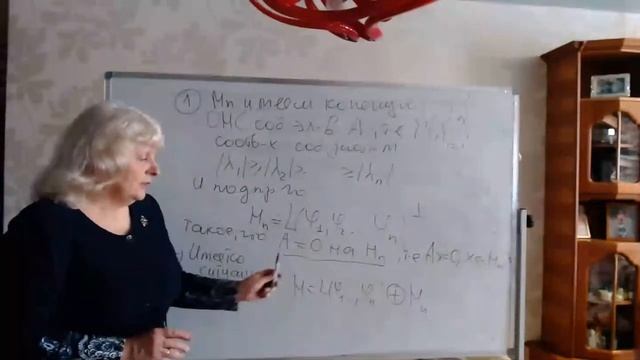 ① Мы имеем конечную
СНС соб эл-в A, т.е {φᵢ}ⁿᵢ₌₁
соотв-х соб знач-м
|λ₁|≥|λ₂|≥ ≥|λₙ|
и подпр-во
Hₙ = L{φ₁, φ₂ φₙ}⊥
такое, что A = 0 на Hₙ, т.е Ax=0, x∈Hₙ
Имеется
H = L{φ₁, φₙ} ⊕ Hₙ